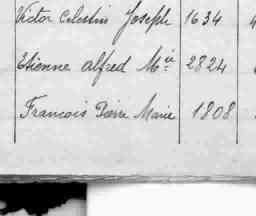 Victor Celestin Joseph 1634
Etienne Alfred M.ie 2824
Francois Pierre Marie 1808